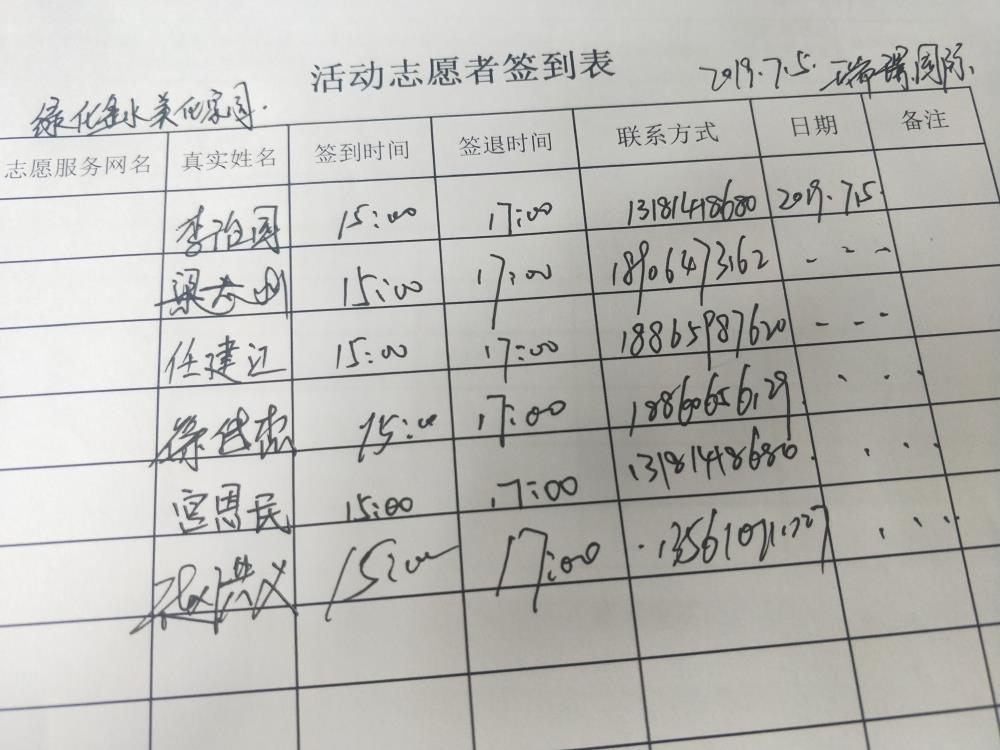 活动志愿者签到表
2019.7.5. 瑞景国际
绿化金水美化家园.
志愿服务网名 真实姓名 签到时间 签退时间 联系方式 日期 备注
李治国 15:00 17:00 13181418680 2019.7.5.
15:00 17:00 18906473162 - - -
任建江 15:00 17:00 18865987620 - - -
15:00 17:00 18860656129 、 、 、
宫恩民 15:00 17:00 13181418680 . . .
洪义 15:00 17:00 、 、 、